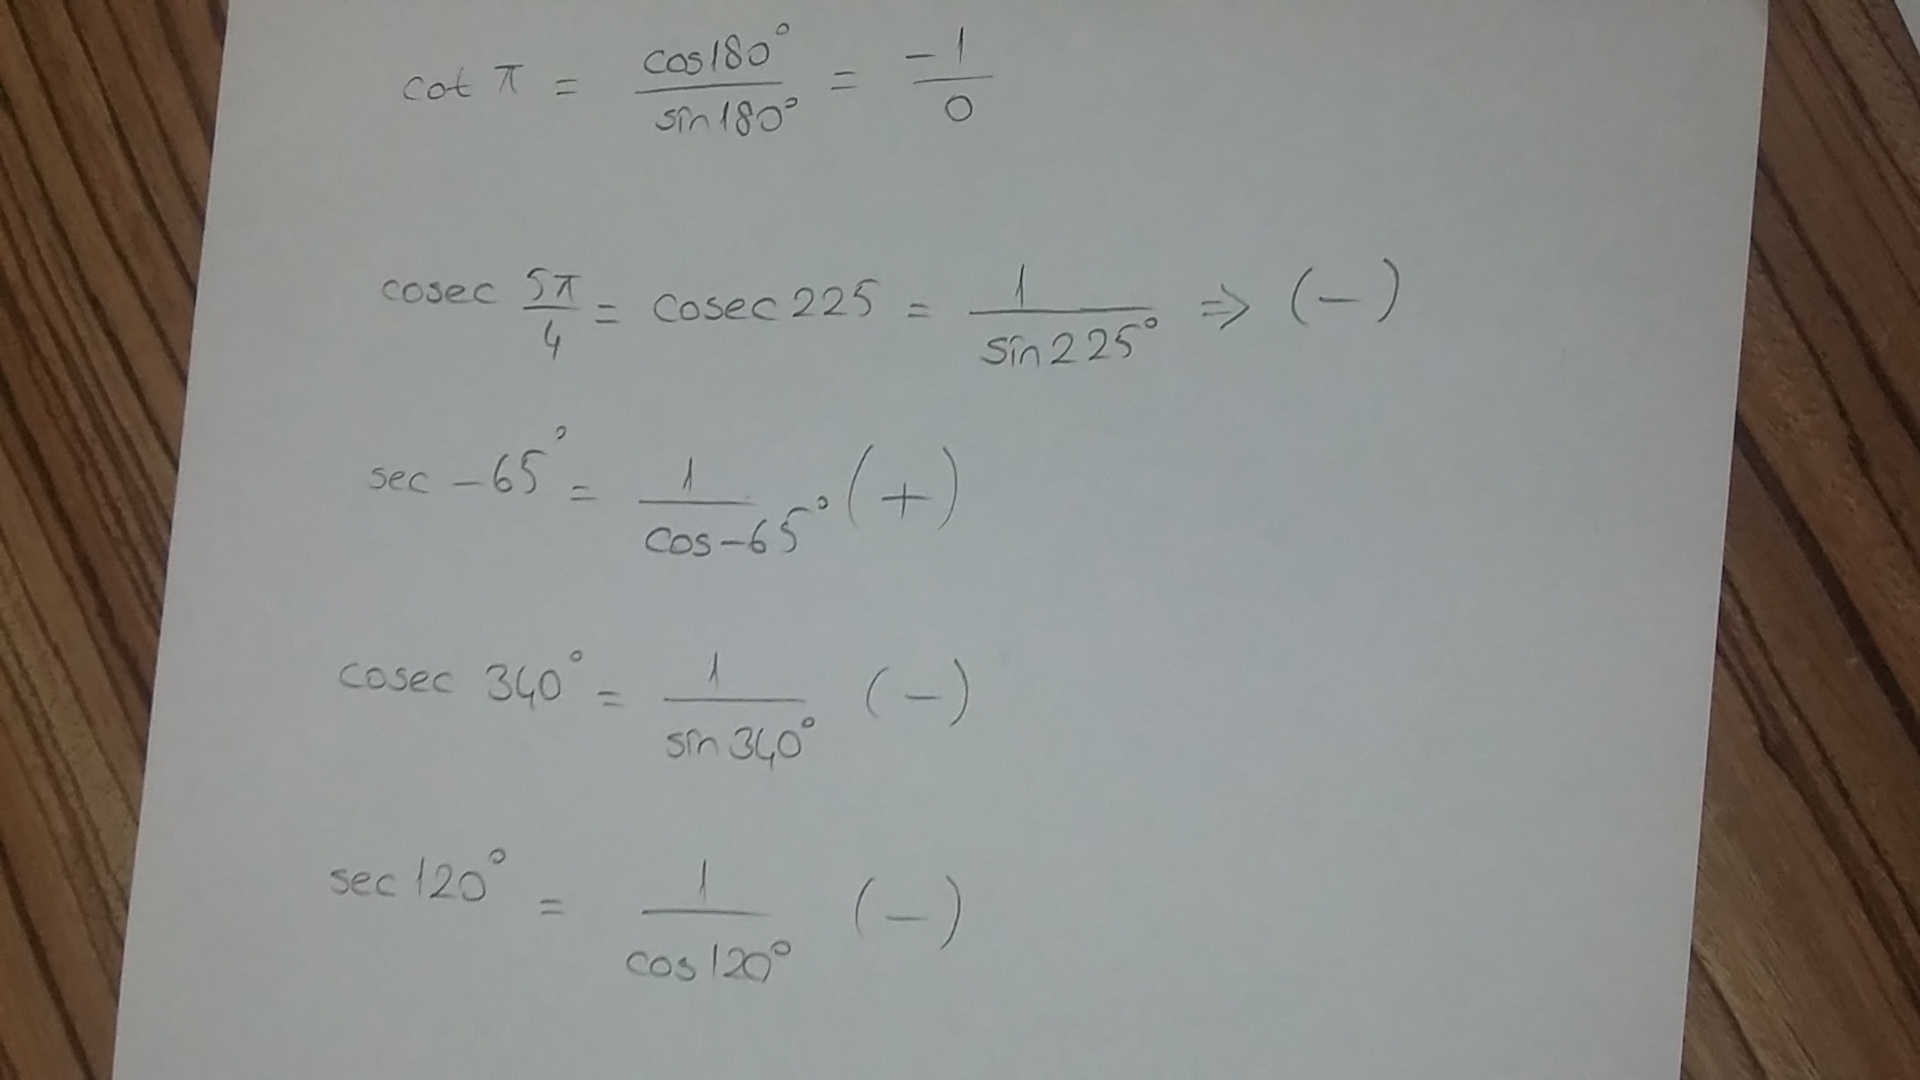 cot π = cos180° / sin180° = -1 / 0
cosec 5π/4 = cosec 225 = 1 / sin225° ⇒ (-)
sec -65° = 1 / cos-65° (+)
cosec 340° = 1 / sin340° (-)
sec 120° = 1 / cos120° (-)